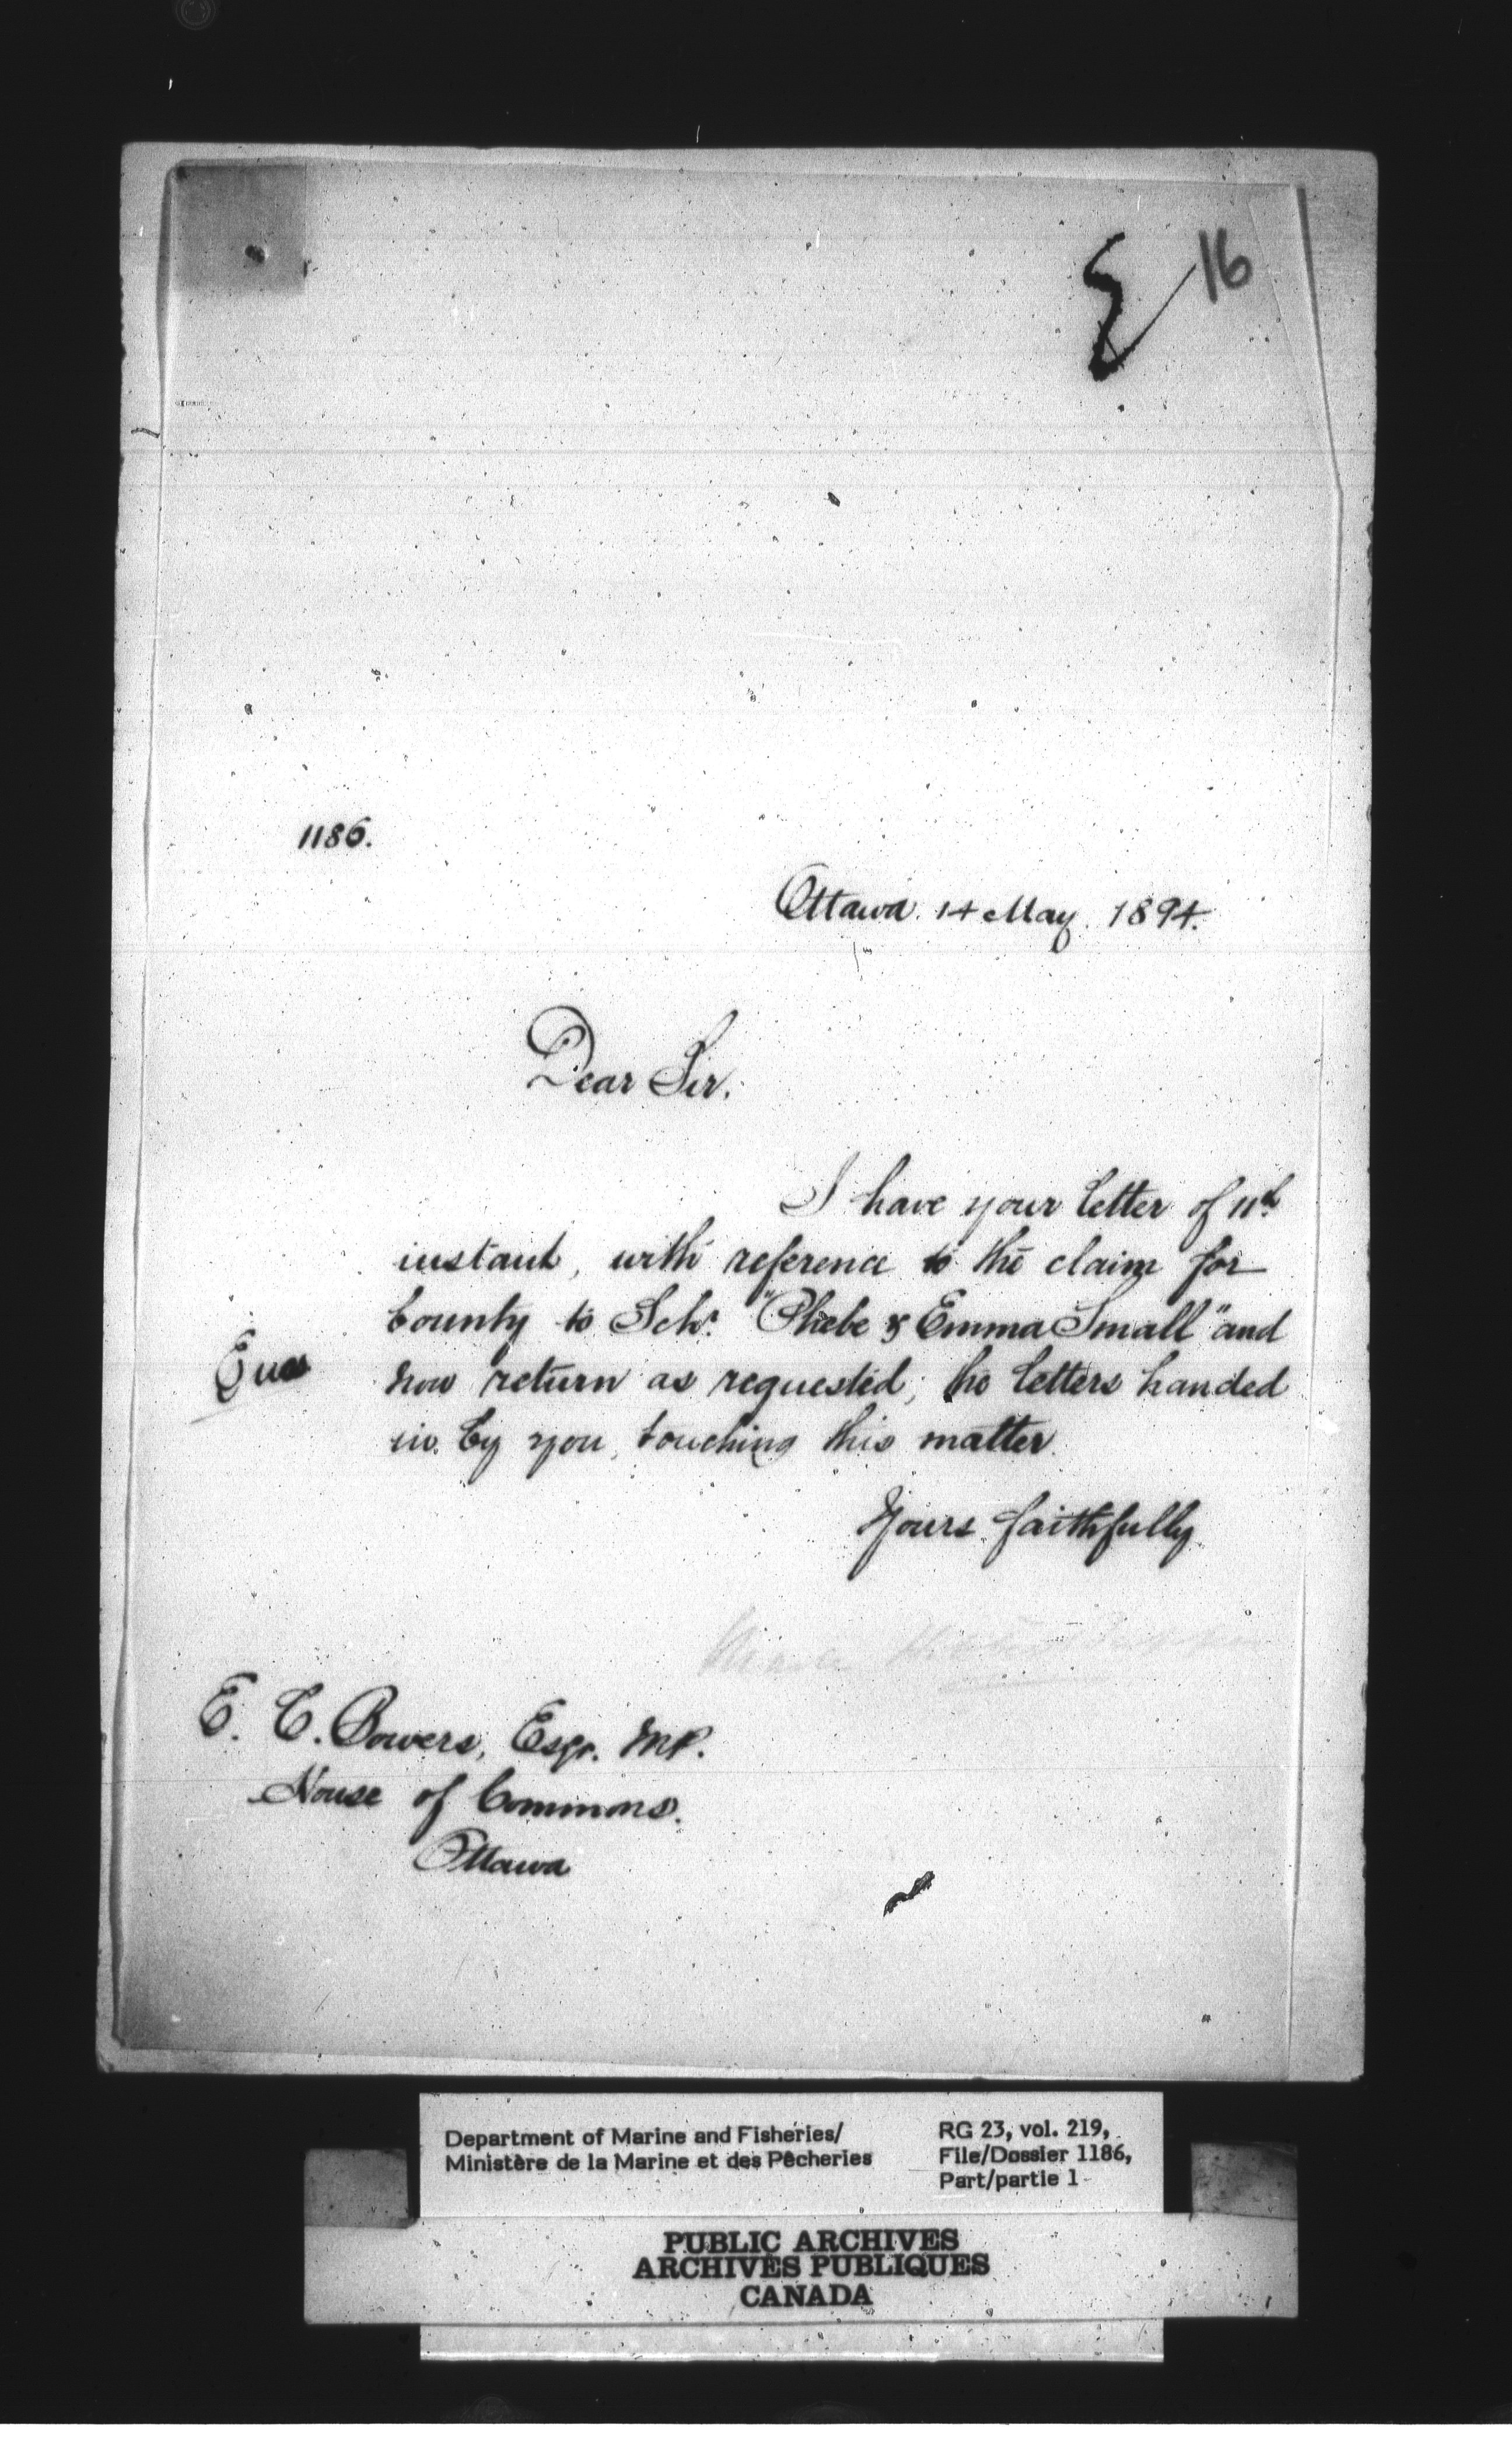 16
1186.
Ottawa. 14 May. 1894.
Dear Sir.
I have your letter of 11th
instant, with reference to the claim for
bounty to Schr. "Phebe & Emma Small" and
now return as requested, the letters handed
in by you, touching this matter.
Yours faithfully
E. C. Bowers, Esqr. MP.
House of Commons.
Ottawa
Department of Marine and Fisheries/
Ministère de la Marine et des Pêcheries
RG 23, vol. 219,
File/Dossier 1186,
Part/partie 1
PUBLIC ARCHIVES
ARCHIVES PUBLIQUES
CANADA